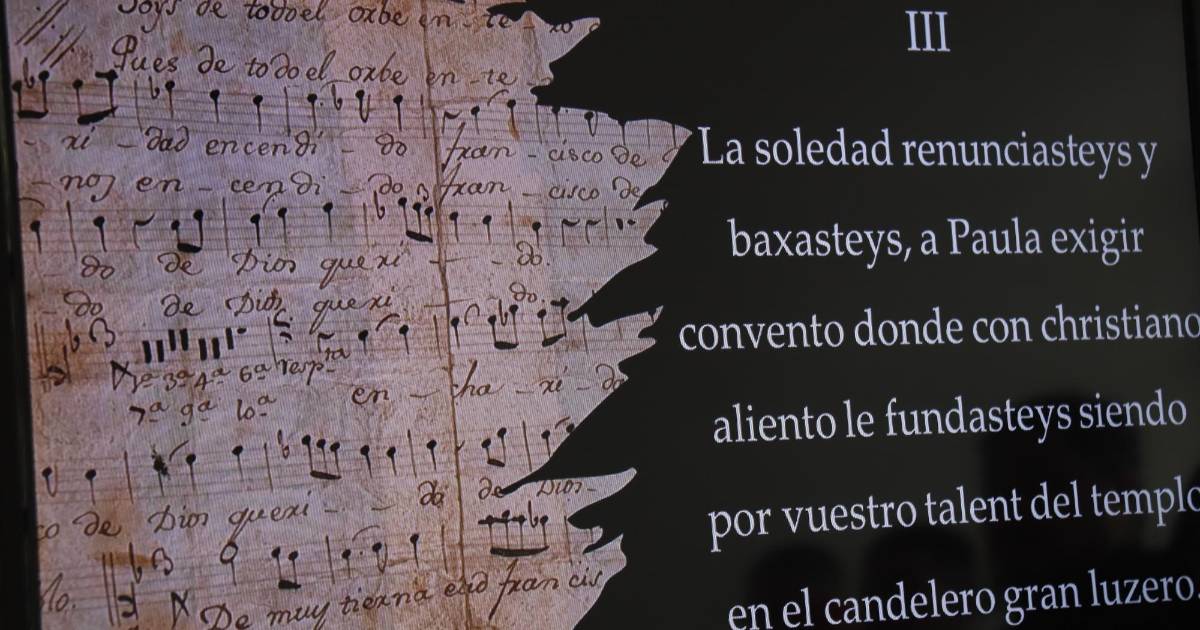 Joys de todo el orbe en - te - ro
Pues de todo el orbe en - te
- ri - dad encendi - do fran - cisco de
- nos en - cendi - do fran - cisco de
do de Dios queri - - do.
do de Dios queri - do.
7ª 9ª 10ª
en - cha - ri - da
co de Dios queri - - do de Dios
De muy tierna edad francis
III
La soledad renunciasteys y
baxasteys, a Paula exigir
convento donde con christiano
aliento le fundasteys siendo
por vuestro talent del templo
en el candelero gran luzero.